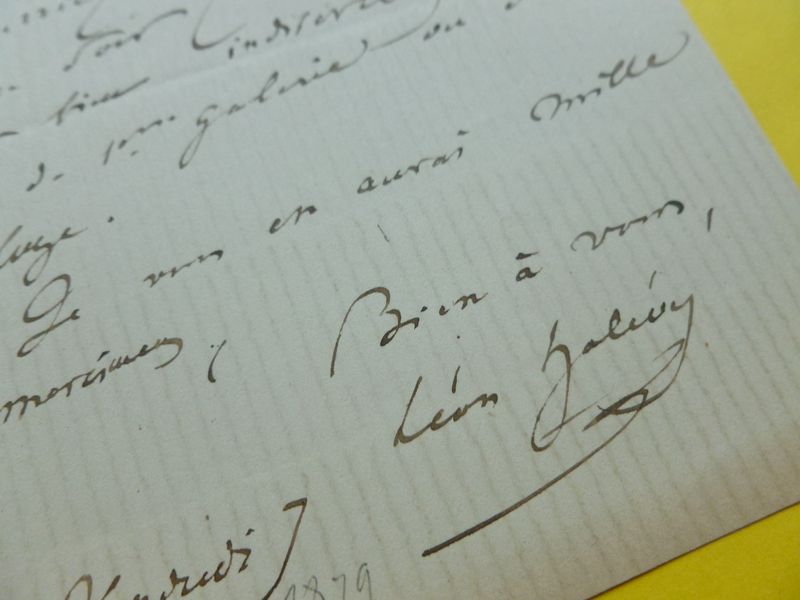 soir indiscre
bien
de 1ères galerie ou
loge.
Je vous en aurai mille
mercimens, Bien à vous,
Léon Halévy
Vendredi
1879